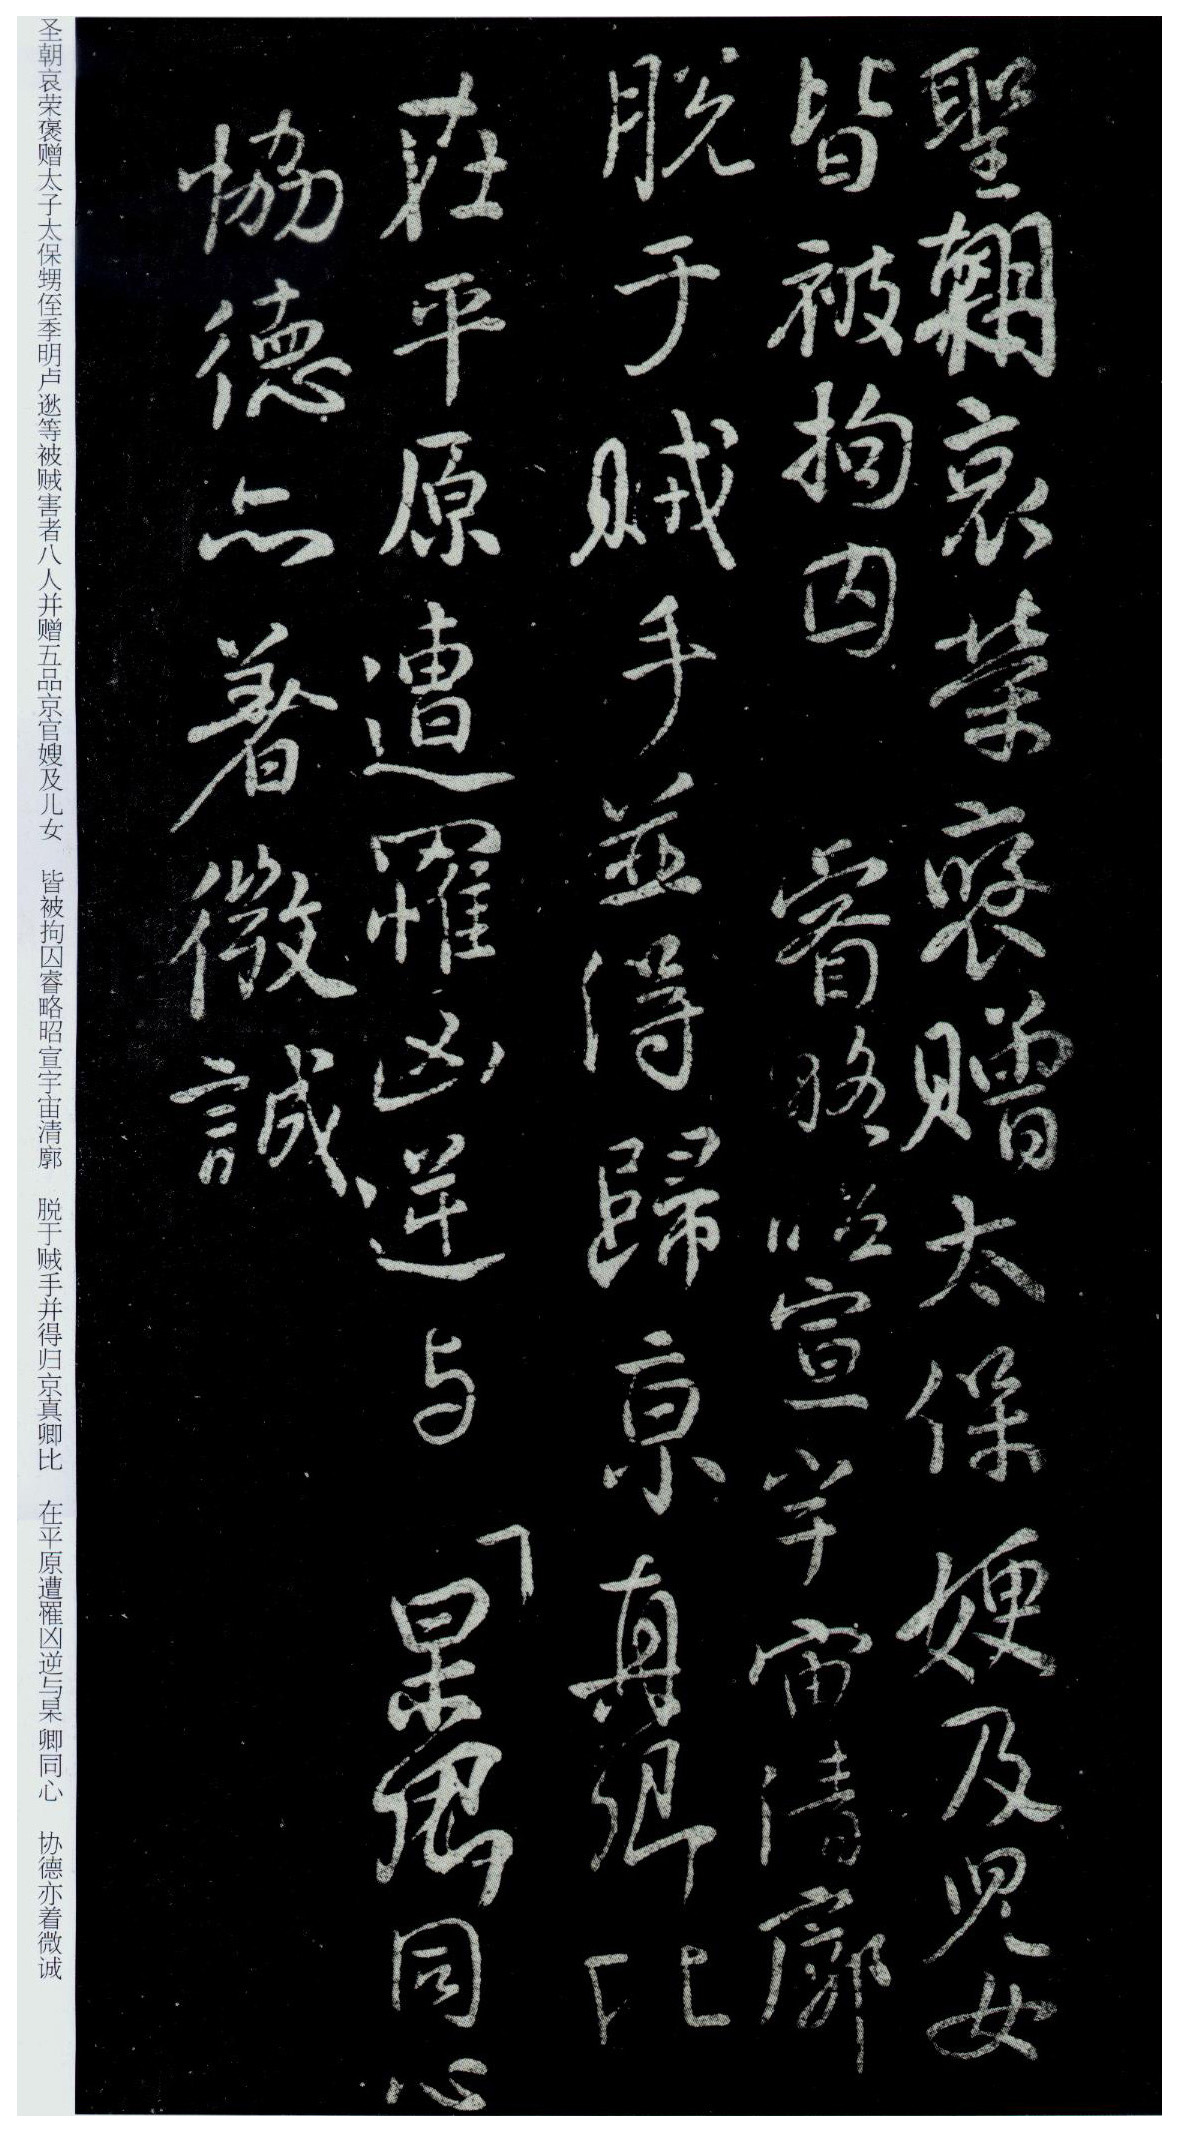 聖朝哀榮褒贈太保嫂及兒女
皆被拘囚睿略昭宣宇宙清廓
脱于賊手並得歸京真卿比
在平原遭罹凶逆与杲卿同心
協德亦著微誠
圣朝哀荣褒赠太子太保甥侄季明卢逖等被贼害者八人并赠五品京官嫂及儿女 皆被拘囚睿略昭宣宇宙清廓 脱于贼手并得归京真卿比 在平原遭罹凶逆与杲卿同心 协德亦着微诚